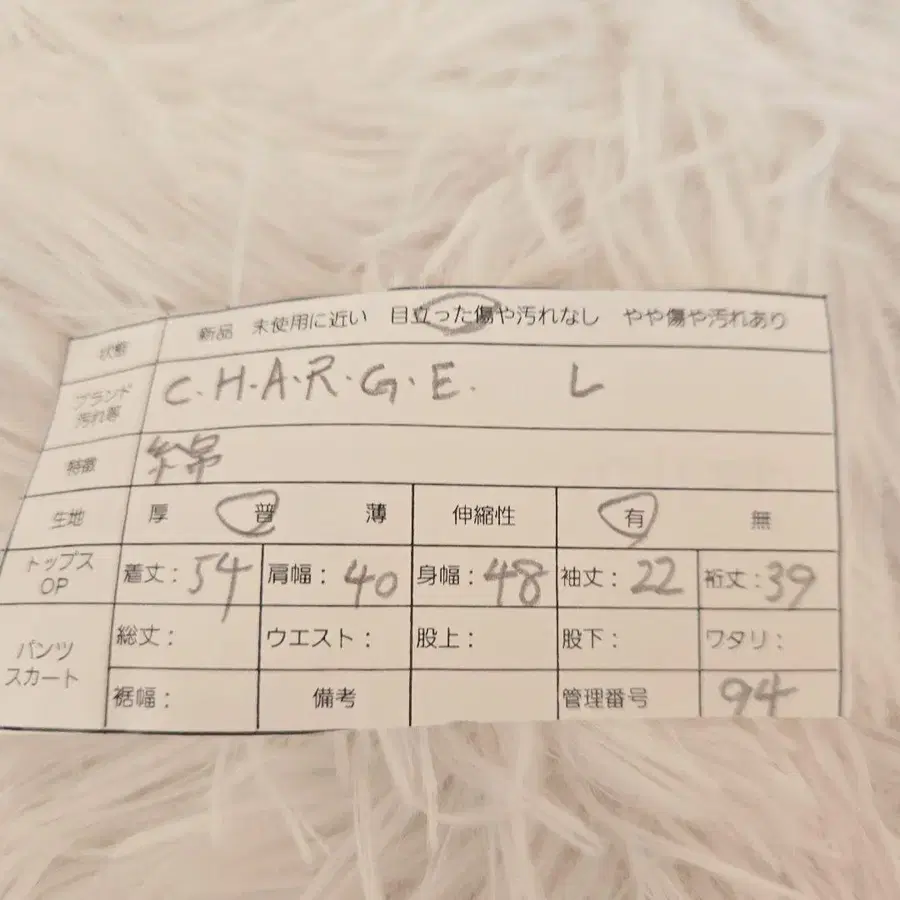 状態 新品 未使用に近い 目立った傷や汚れなし やや傷や汚れあり
ブランド 汚れ等 C.H.A.R.G.E. L
特徴 綿
生地 厚 普 薄 伸縮性 有 無
トップス OP 着丈：54 肩幅：40 身幅：48 袖丈：22 裄丈：39
パンツ スカート 総丈： ウエスト： 股上： 股下： ワタリ：
裾幅： 備考 管理番号 94